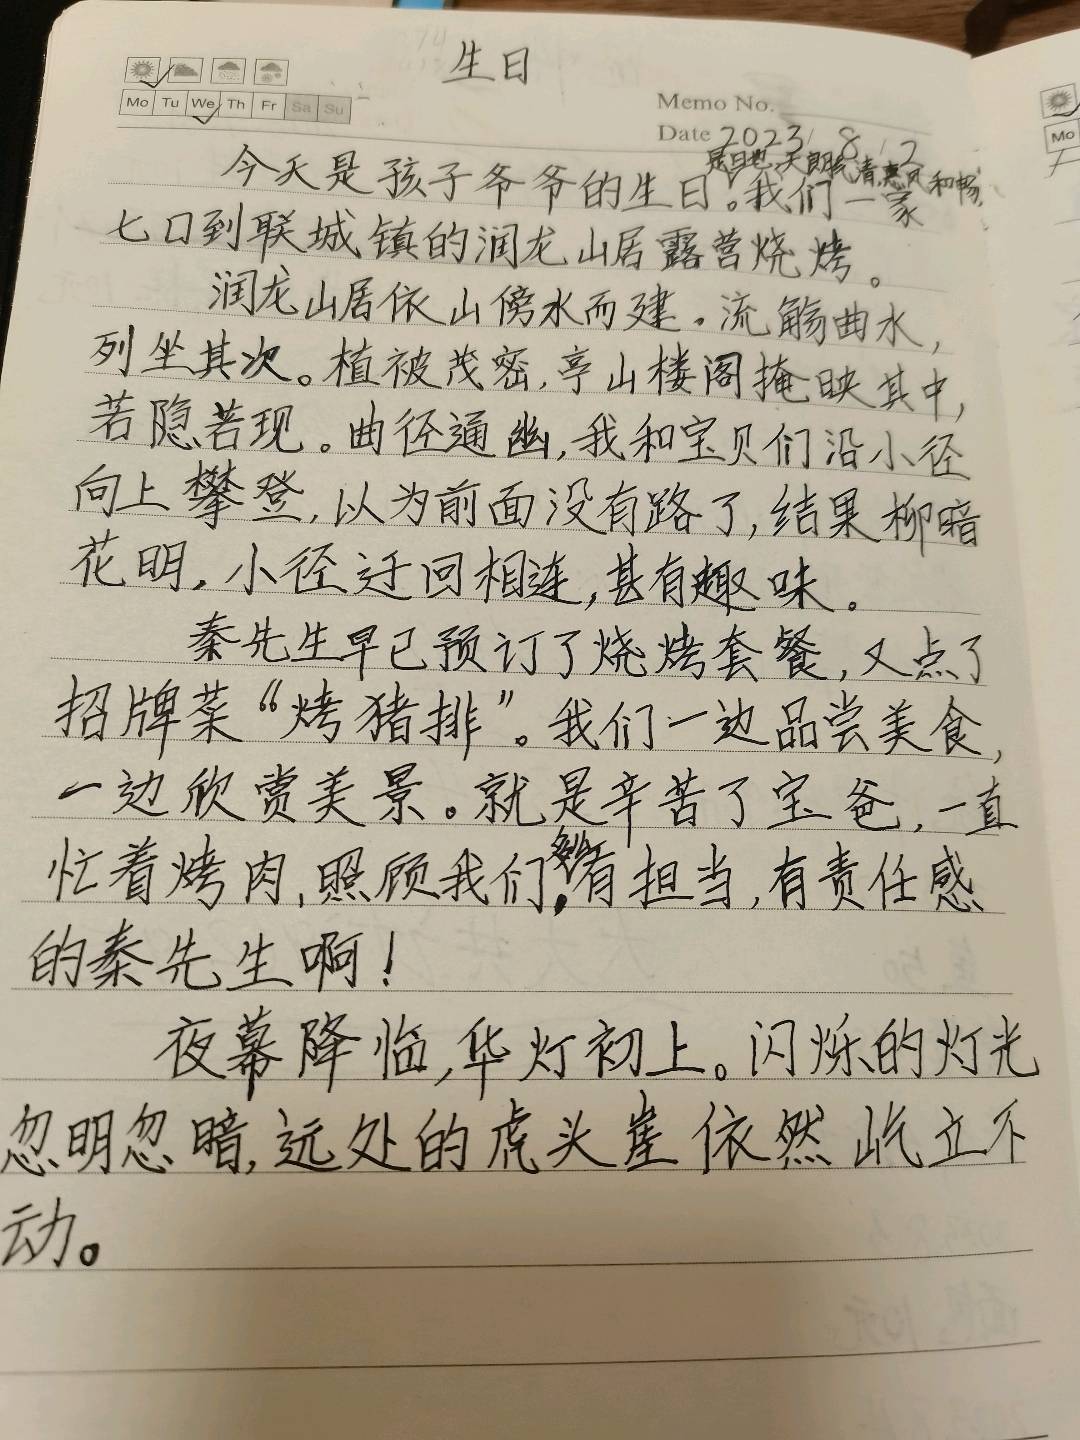 生日
Mo Tu We Th Fr Sa Su
Memo No.
Date 2023/8/2
是日也,天朗气清,惠风和畅,
今天是孩子爷爷的生日。我们一家
七口到联城镇的润龙山居露营烧烤。
润龙山居依山傍水而建。流觞曲水,
列坐其次。植被茂密,亭山楼阁掩映其中,
若隐若现。曲径通幽,我和宝贝们沿小径
向上攀登,以为前面没有路了,结果柳暗
花明,小径迂回相连,甚有趣味。
秦先生早已预订了烧烤套餐,又点了
招牌菜“烤猪排”。我们一边品尝美食,
一边欣赏美景。就是辛苦了宝爸,一直
忙着烤肉,照顾我们,多么有担当,有责任感
的秦先生啊!
夜幕降临,华灯初上。闪烁的灯光
忽明忽暗,远处的虎头崖依然屹立不
动。
Mo